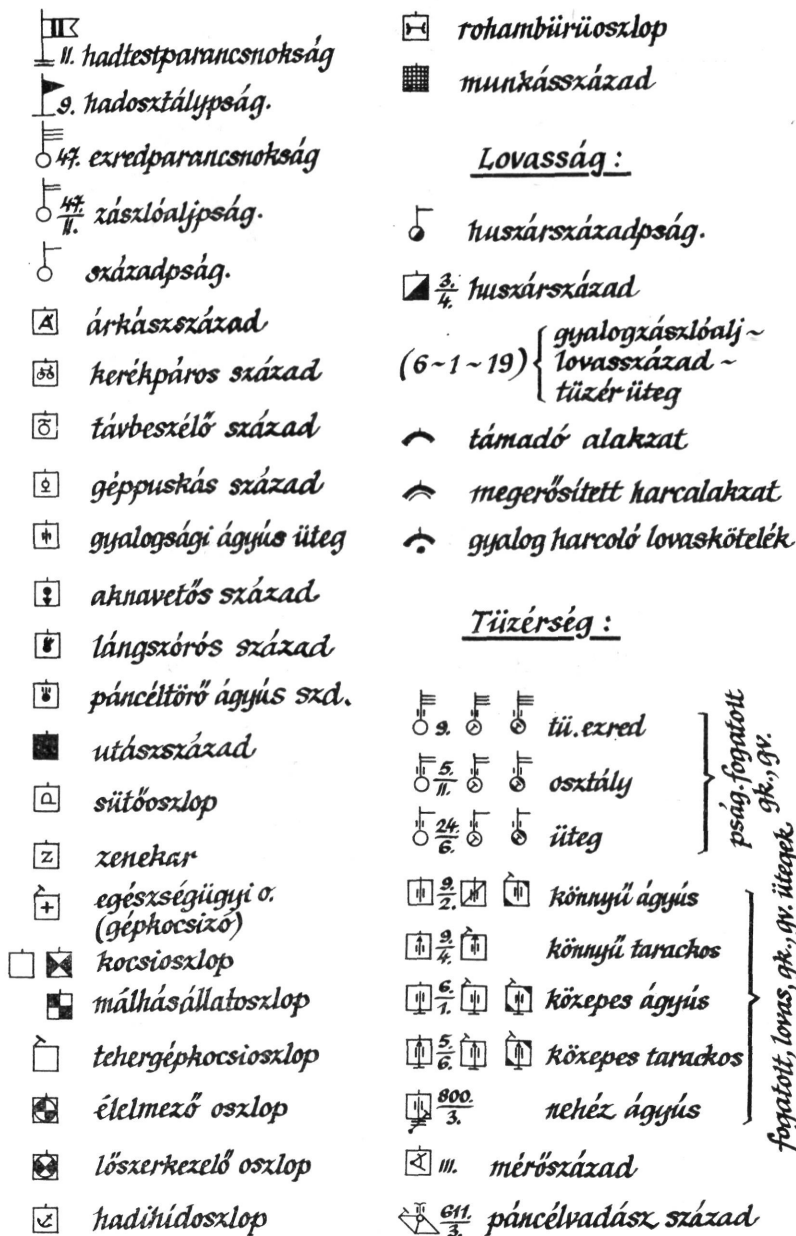 II
II. hadtestparancsnokság
9. hadosztálypság.
47. ezredparancsnokság
47./II. zászlóaljpság.
századpság.
árkászszázad
kerékpáros század
távbeszélő század
géppuskás század
gyalogsági ágyús üteg
aknavetős század
lángszórós század
páncéltörő ágyús szd.
utászszázad
sütőoszlop
Z zenekar
egészségügyi o.
(gépkocsizó)
kocsioszlop
málhásállatoszlop
tehergépkocsioszlop
élelmező oszlop
lőszerkezelő oszlop
hadihídoszlop
rohambürüoszlop
munkásszázad
Lovasság :
huszárszázadpság.
3./4. huszárszázad
(6~1~19) { gyalogzászlóalj ~
lovasszázad ~
tüzér üteg
támadó alakzat
megerősített harcalakzat
gyalog harcoló lovaskötelék
Tüzérség :
9. tü. ezred
5./II. osztály
24./6. üteg
pság. fogatott
gk., gv.
9./2. könnyű ágyús
9./4. könnyű tarackos
6./1. közepes ágyús
5./6. közepes tarackos
800./3. nehéz ágyús
fogatott, lovas, gk., gv. ütegek
III. mérőszázad
611./3. páncélvadász század